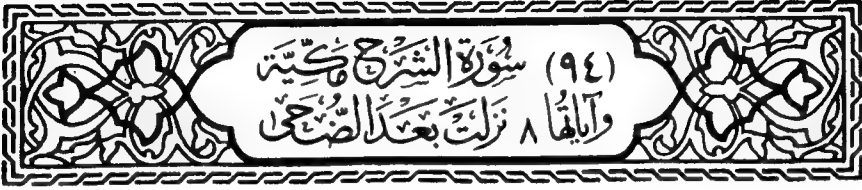 (٩٤) سُورَة الشَرَح مَكيَّة
وَآيَاتهَا ٨ نَزلَتْ بَعدَ الضُّحَى